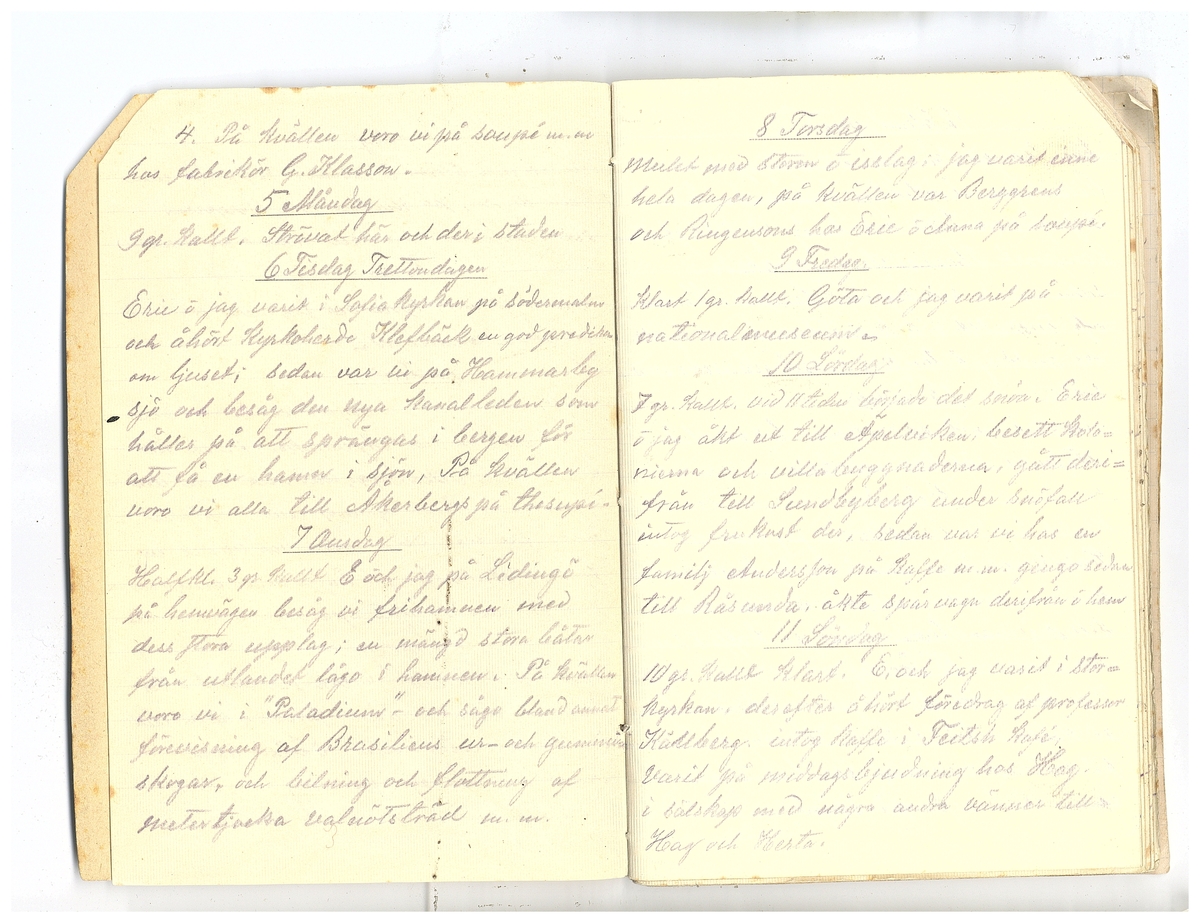 4. På kvällen voro vi på soupé m.m
hos fabrikör G. Klasson.
5 Måndag
9 gr. kallt. Strövat här och der i staden
6 Tisdag Trettondagen
Eric ö jag varit i Sofia kyrkan på södermalm
och åhört Kyrkoherde Klefbäck en god predikan
om ljuset; sedan var vi på Hammarby
sjö och besåg den nya kanalleden som
håller på att sprängas i bergen för
att få en hamn i sjön, På kvällen
voro vi alla till Åkerbergs på thesupé-
7 Onsdag
Halfkl. 3 gr kallt E och jag på Lidingö
på hemvägen besåg vi frihamnen med
dess stora upplag; en mängd stora båtar
från utlandet lågo i hamnen. På kvällen
voro vi i "Paladium" - och sågo bland annat
förevisning af Brasiliens ur- och gummi
skogar, och bilning och flottning af
metertjocka valnötsträd m.m.
8 Torsdag
Mulet med storm ö isslag; jag varit inne
hela dagen, på kvällen var Berggrens
och Ringensons hos Eric ö Anna på soupé.
9 Fredag
Klart 1 gr. kallt. Göta och jag varit på
nationalmuseum.
10 Lördag
7 gr. kallt. vid 11 tiden började det snöa. Eric
ö jag åkt ut till Apelviken. besett kolo=
nierna och villabyggnaderna, gått deri=
från till Sundbyberg under snöfall
intog frukost der, sedan var vi hos en
familj Andersson på kaffe m.m. gingo sedan
till Råsunda. åkte spårvagn derifrån ö hem
11 Söndag
10 gr. kallt klart. E. och jag varit i stor=
kyrkan. derefter åhört föredrag af professor
Källberg. intog kaffe i Feitsh kafe,
varit på middagsbjudning hos Hag.
i sälskap med några andra vänner till=
Hag och Herta.